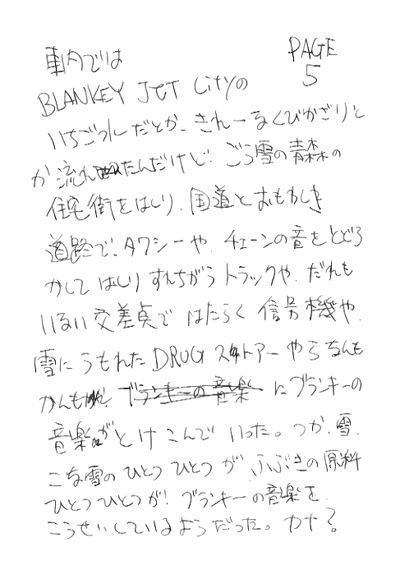 車内では
PAGE 5
BLANKEY JET Cityの
いちごつみだとか、きれーなくびかざりと
か流れてたんだけど、ごう雪の青森の
住宅街をはしり、国道とおもわしき
道路で、タクシーや、チェーンの音をとどろ
かしてはしりすれちがうトラックや、だれも
いない交差点ではたらく信号機や、
雪にうもれたDRUGストアーやらなんも
かんもが、ブランキーの音楽にブランキーの
音楽がとけこんでいった。つか、雪、
こな雪のひとつひとつが、ふぶきの原料
ひとつひとつが!ブランキーの音楽を
こうせいしているようだった。カナ?